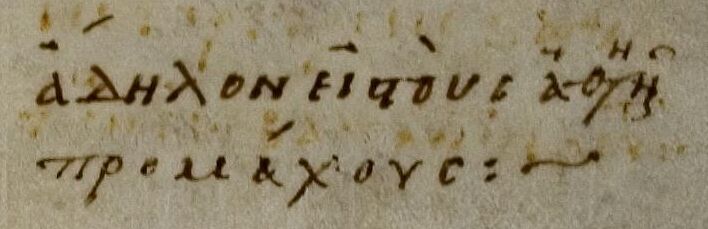 ἄδηλον εἰ τοὺς
προμάχους :~